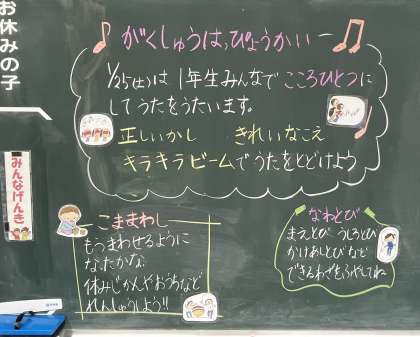 お休みの子
みんなげんき
がくしゅうはっぴょうかい
1/25(土)は1年生みんなでこころひとつに
してうたをうたいます。
正しいかし　きれいなこえ
キラキラビームでうたをとどけよう
こままわし
もうまわせるように
なったかな
休みじかんやおうちなど
れんしゅうしよう!!
なわとび
まえとび うしろとび
かけあしとび など
できるわざをふやしてね